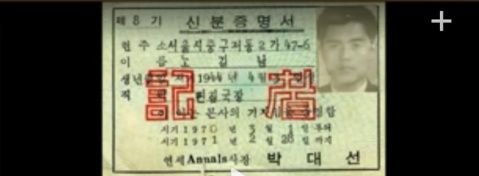 제 8 기 신분증명서
현 주 소 서울시중구저동 2가 47-6
이 름 노 길 남
생년월일 서기 1944 년 4월
직 편집국장
記者
서기 1970 년 3 월 1 일 부터
서기 1971 년 2 월 28 일 까지
연세 Annals사장 박 대 선